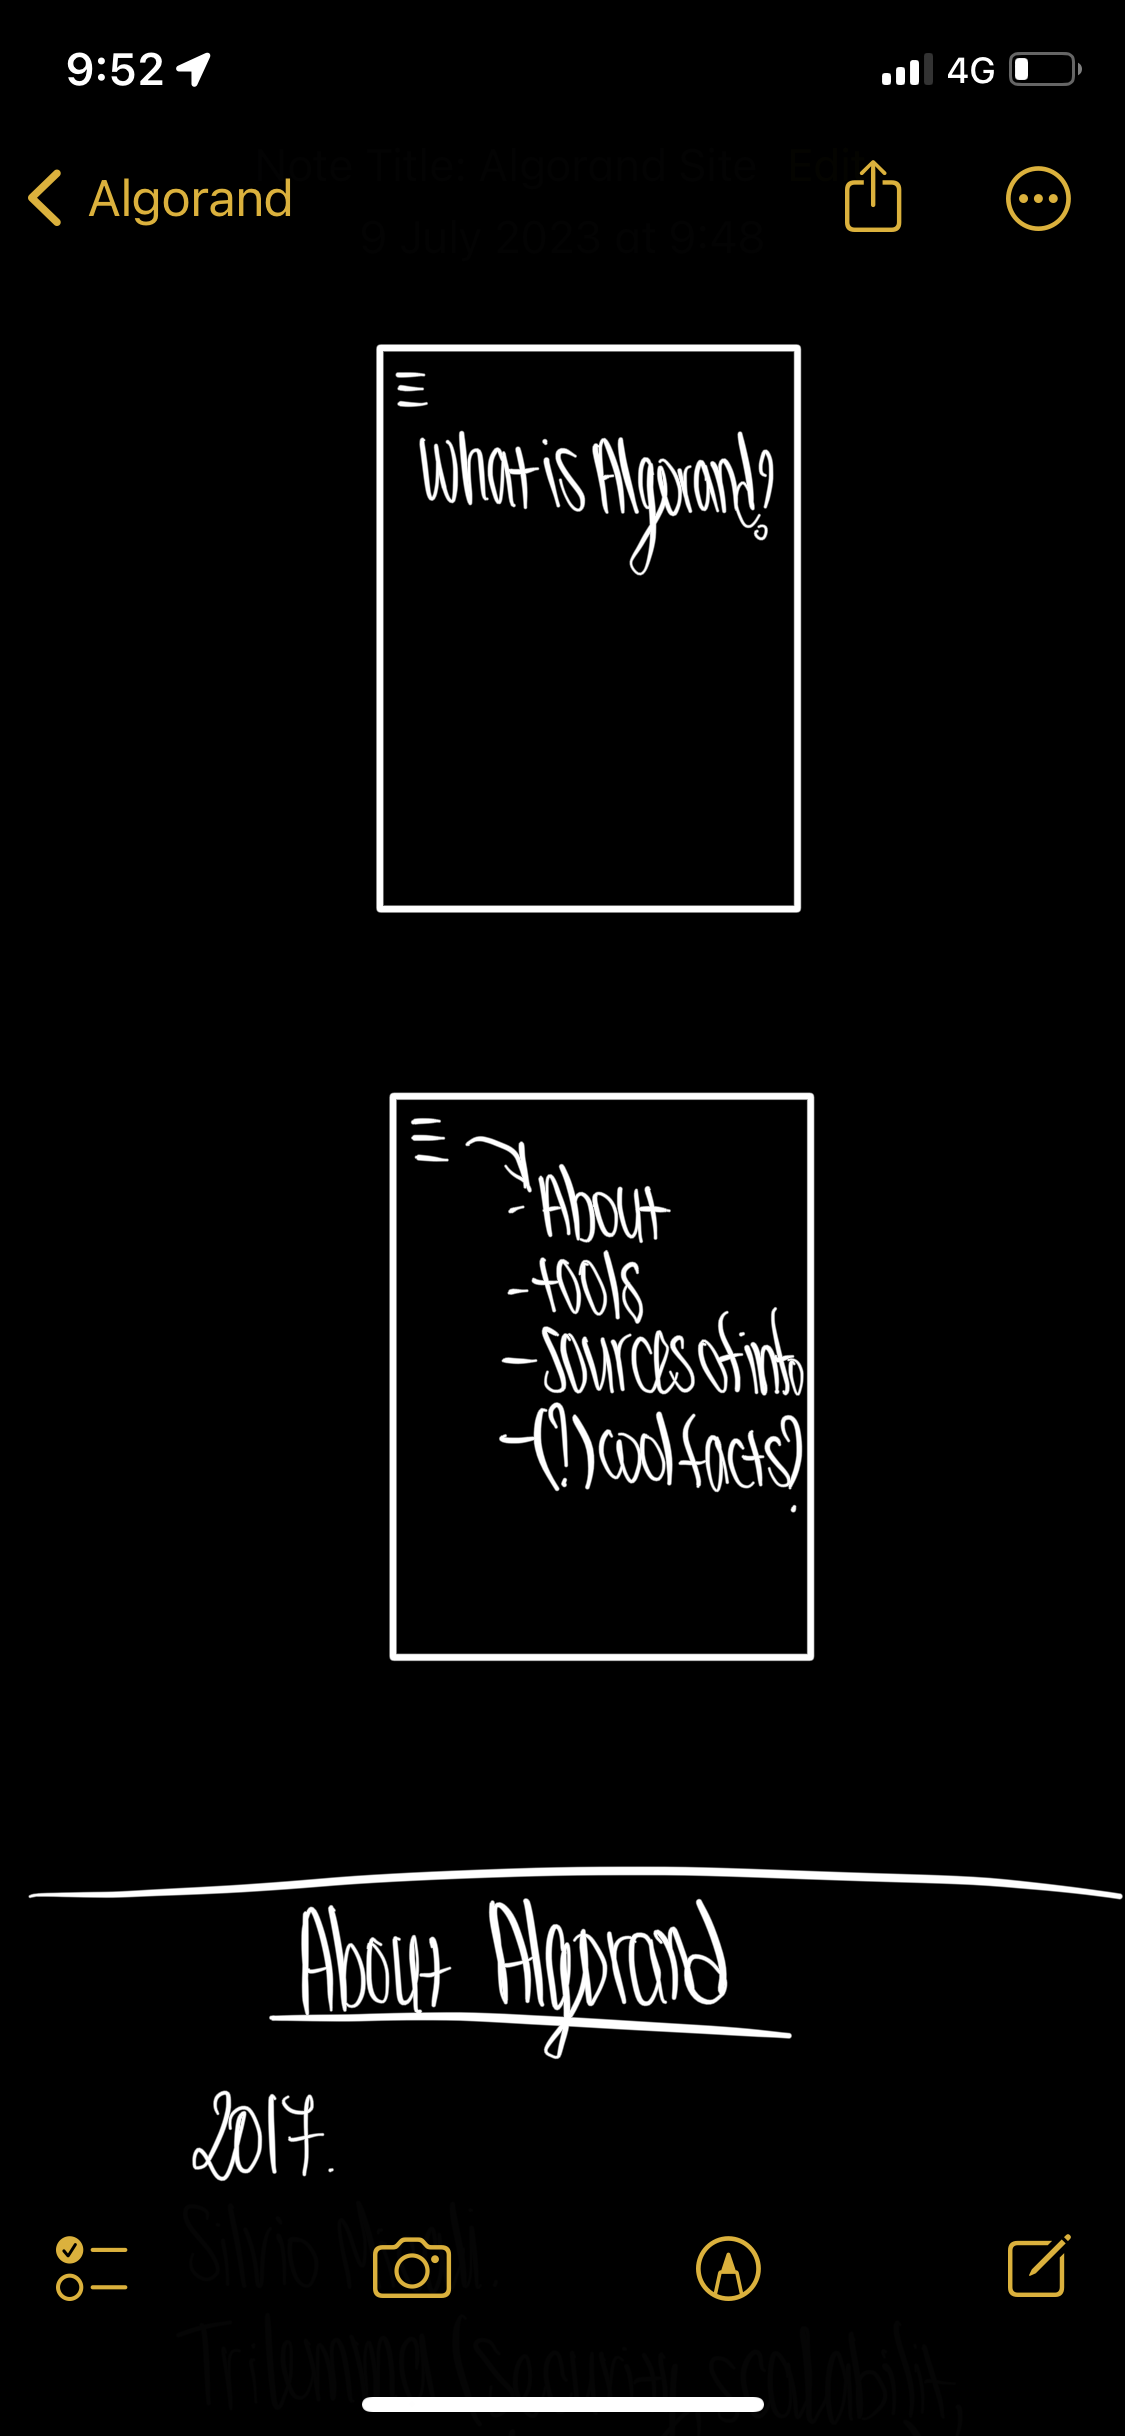 9:52
4G
Note Title: Algorand Site Edit
Algorand
9 July 2023 at 9:48
What is Algorand?
- About
- tools
- sources of info
- (?) cool facts?
About Algorand
2017.
Silvio Micali
Trilemma (security, scalabilit